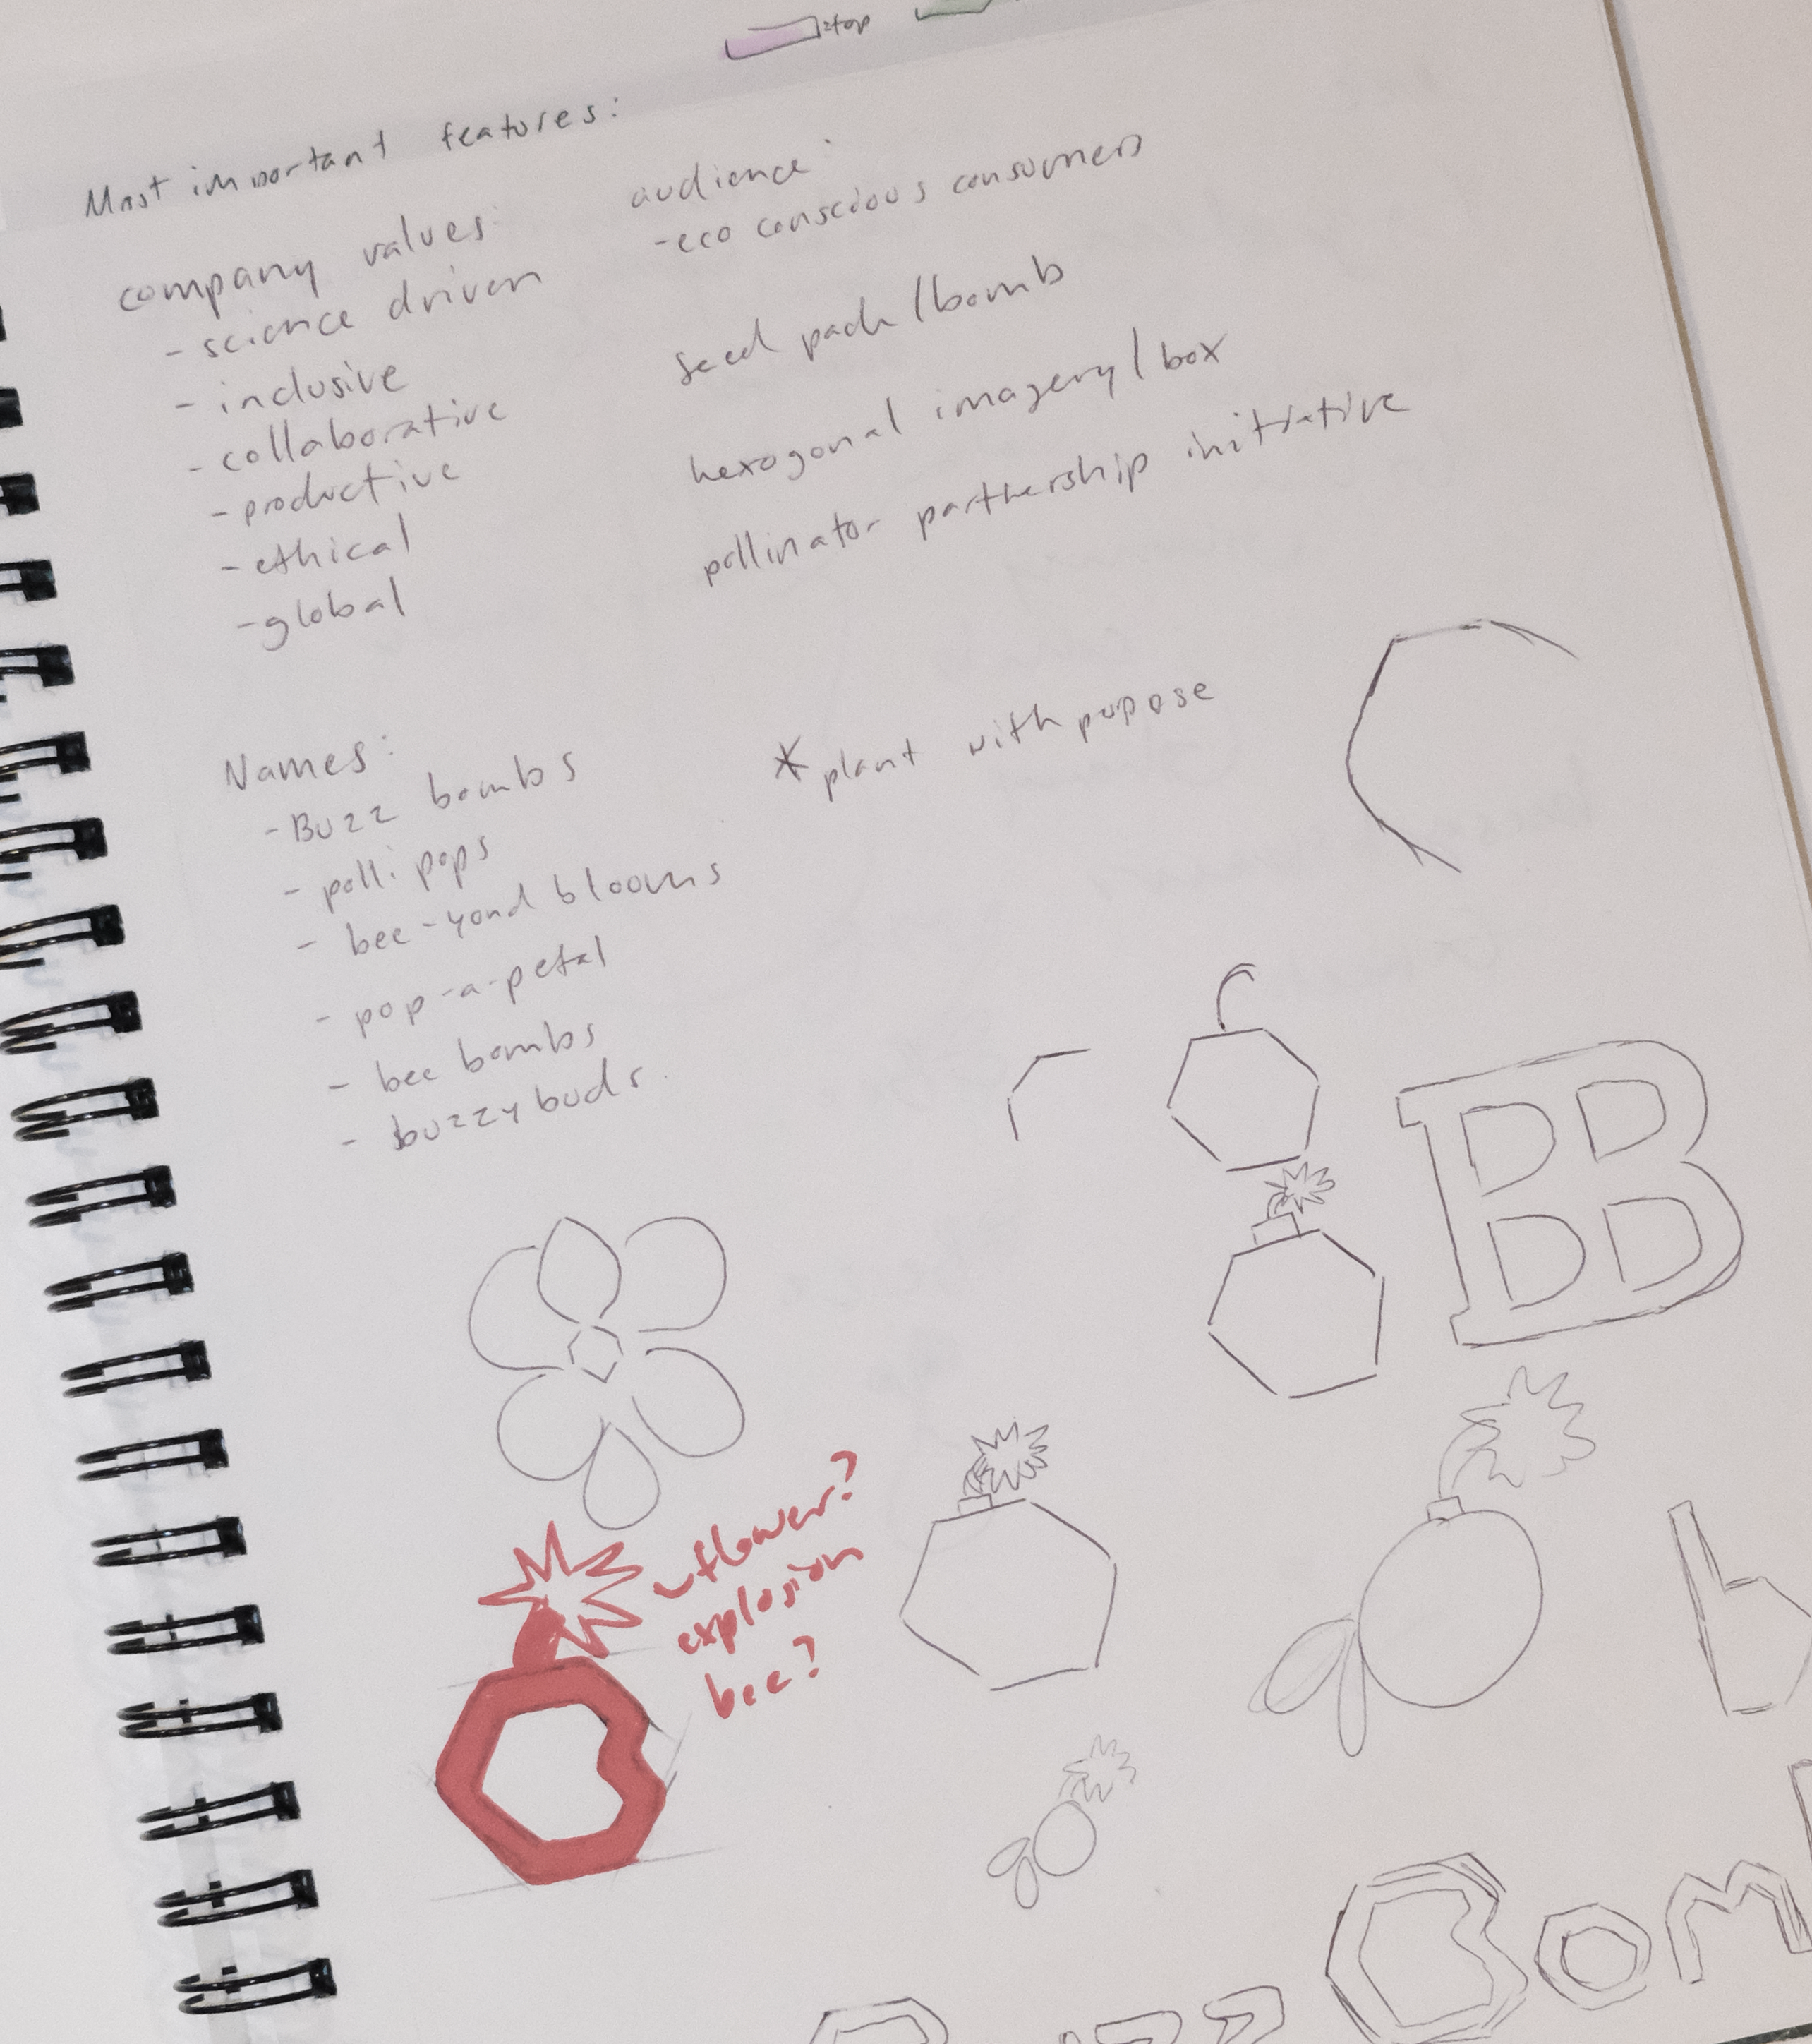 =top
Most important features:
company values:
- science driven
- inclusive
- collaborative
- productive
- ethical
- global
audience:
- eco conscious consumers
seed pack/bomb
hexogonal imagery/box
pollinator partnership initiative
Names:
- Buzz bombs
- polli pops
- bee-yond blooms
- pop-a-petal
- bee bombs
- buzzybuds
* plant with pupose
BB
flower?
explosion
bee?
b
Buzz Bom